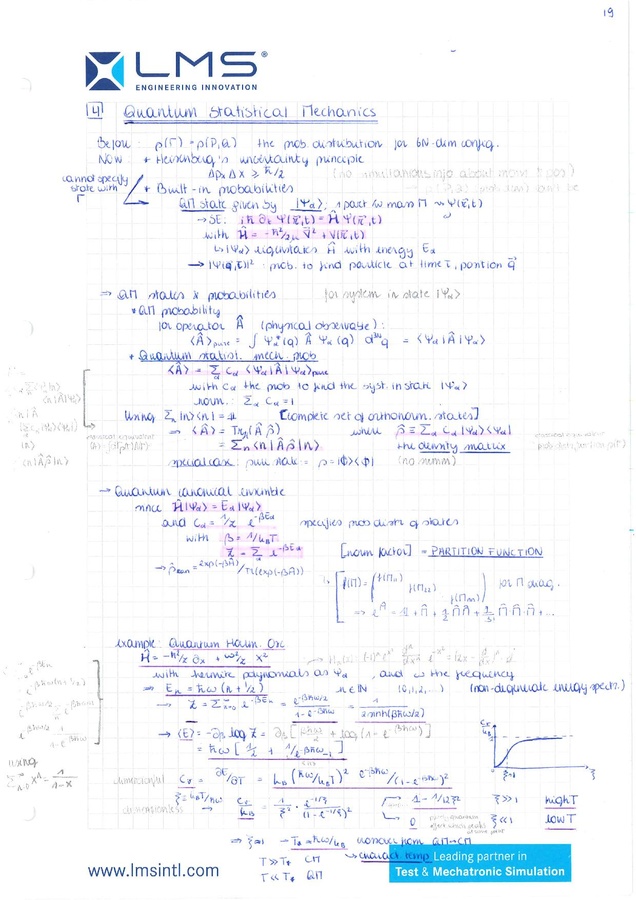 19
LMS®
ENGINEERING INNOVATION
4 Quantum Statistical Mechanics
Before: ρ(Γ) = ρ(P,Q) the prob. distribution for 6N-dim config.
Now: + Heisenberg's uncertainty principle
Δp, Δx ≥ ħ/2
cannot specify state with Γ
+ Built-in probabilities
QM state given by |Ψα>, 1 part. w mass M → Ψ(r,t)
→ SE: iħ ∂t Ψ(r,t) = Ĥ Ψ(r,t)
with Ĥ = -ħ²/2μ ∇² + V(r,t)
↳ |Ψα> eigenstates Ĥ with energy Eα
→ |Ψ(q,t)|²: prob. to find particle at time t, position q
⇒ QM states & probabilities for system in state |Ψα>
* QM probability
for operator Â (physical observable):
<Â>pure = ∫ Ψα*(q) Â Ψα(q) d³ᴺq = <Ψα|Â|Ψα>
+ Quantum statist. mech. prob
<Â> = Σα Cα <Ψα|Â|Ψα>pure
with Cα the prob to find the syst. in state |Ψα>
norm.: Σα Cα = 1
Using Σn |n><n| = 1 [complete set of orthonorm. states]
⇒ <Â> = Tr(Â ρ̂) where ρ̂ = Σα Cα |Ψα><Ψα|
= Σn <n|Â ρ̂|n> the density matrix
special case: pure state: ρ = |Φ><Φ| (no summ)
→ Quantum canonical ensemble
since Ĥ|Ψα> = Eα|Ψα>
and Cα = 1/Z e^-βEα specifies prob. distr. of states
with β = 1/kBT
Z = Σα e^-βEα [norm factor] = PARTITION FUNCTION
→ ρ̂can = exp(-βĤ)/Tr(exp(-βĤ))
for M diag.
⇒ e^M̂ = 1 + M̂ + 1/2 M̂M̂ + 1/3! M̂·M̂·M̂ + ...
example: Quantum Harm. Osc
Ĥ = -ħ²/2 ∂x + ω²/2 x²
with hermite polynomials as Ψα, and ω the frequency
⇒ En = ħω(n + 1/2) n∈ℕ (0,1,2,...) (non-degenerate energy spectr.)
→ Z = Σn=0^∞ e^-βEn = e^-βħω/2 / 1-e^-βħω = 1 / 2sinh(βħω/2)
→ <E> = -∂β log Z = ∂β [βħω/2 + log(1-e^-βħω)]
= ħω [1/2 + 1/e^βħω-1]
using
Σn=0^∞ xⁿ = 1/1-x
dimensionful Cv = ∂E/∂T = kB (ħω/kBT)² e^-βħω/(1-e^-βħω)²
ξ = kBT/ħω
dimensionless Cv/kB = 1/ξ² · e^-1/ξ/(1-e^-1/ξ)²
1 - 1/12ξ² ξ>>1 high T
0 ξ<<1 low T
Cv/kB
1
ξ~1
ξ
⇒ ξ≈1 → T* ≈ ħω/kB crossover from QM→CM
↳ charact. temp
T >> T* CM
T << T* QM
www.lmsintl.com
Leading partner in
Test & Mechatronic Simulation